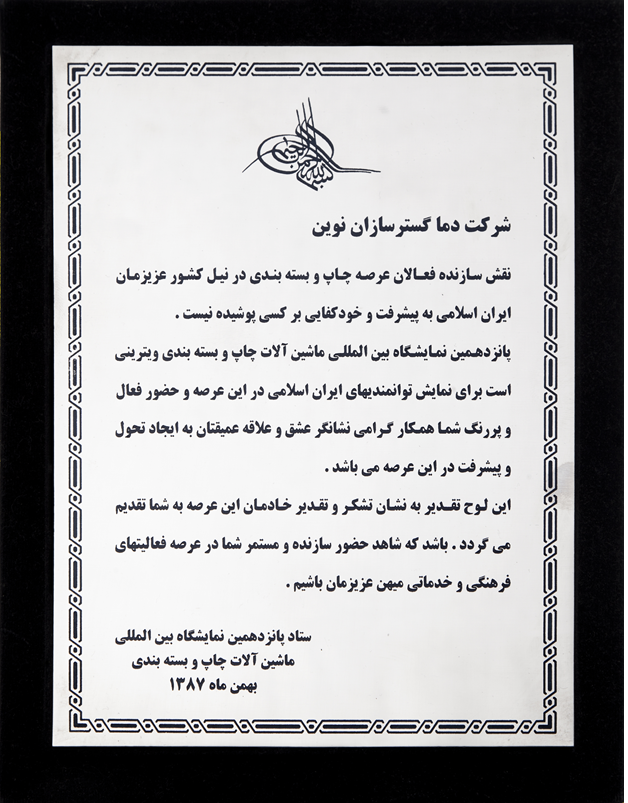 بسم الله الرحمن الرحیم
شرکت دما گسترسازان نوین
نقش سازنده فعالان عرصه چاپ و بسته بندی در نیل کشور عزیزمان
ایران اسلامی به پیشرفت و خودکفایی بر کسی پوشیده نیست .
پانزدهمین نمایشگاه بین المللی ماشین آلات چاپ و بسته بندی ویترینی
است برای نمایش توانمندیهای ایران اسلامی در این عرصه و حضور فعال
و پررنگ شما همکار گرامی نشانگر عشق و علاقه عمیقتان به ایجاد تحول
و پیشرفت در این عرصه می باشد .
این لوح تقدیر به نشان تشکر و تقدیر خادمان این عرصه به شما تقدیم
می گردد . باشد که شاهد حضور سازنده و مستمر شما در عرصه فعالیتهای
فرهنگی و خدماتی میهن عزیزمان باشیم .
ستاد پانزدهمین نمایشگاه بین المللی
ماشین آلات چاپ و بسته بندی
بهمن ماه ۱۳۸۷